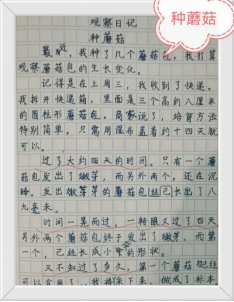 种蘑菇
观察日记
种蘑菇
最近,我种了几个蘑菇包,我打算
观察蘑菇包的生长变化。
记得是在上周三,我收到了快递。
我拆开快递箱,里面是三个高约八厘米
的圆柱形蘑菇包。商家说了,培育方法
特别简单,只需用湿布盖着约十四天就
可以。
过了知约四天的时间,只有一个蘑
菇包发出了嫩芽,而另外两个,还在沉
睡。发出嫩芽的蘑菇包已长出了八
九毫米。
时间一晃而过,一转眼又过了四天
另外两个蘑菇包终于发了嫩芽,而第
一个,已经长成小蘑的形状。
又不知过了多久,第一个蘑菇包已经
可以